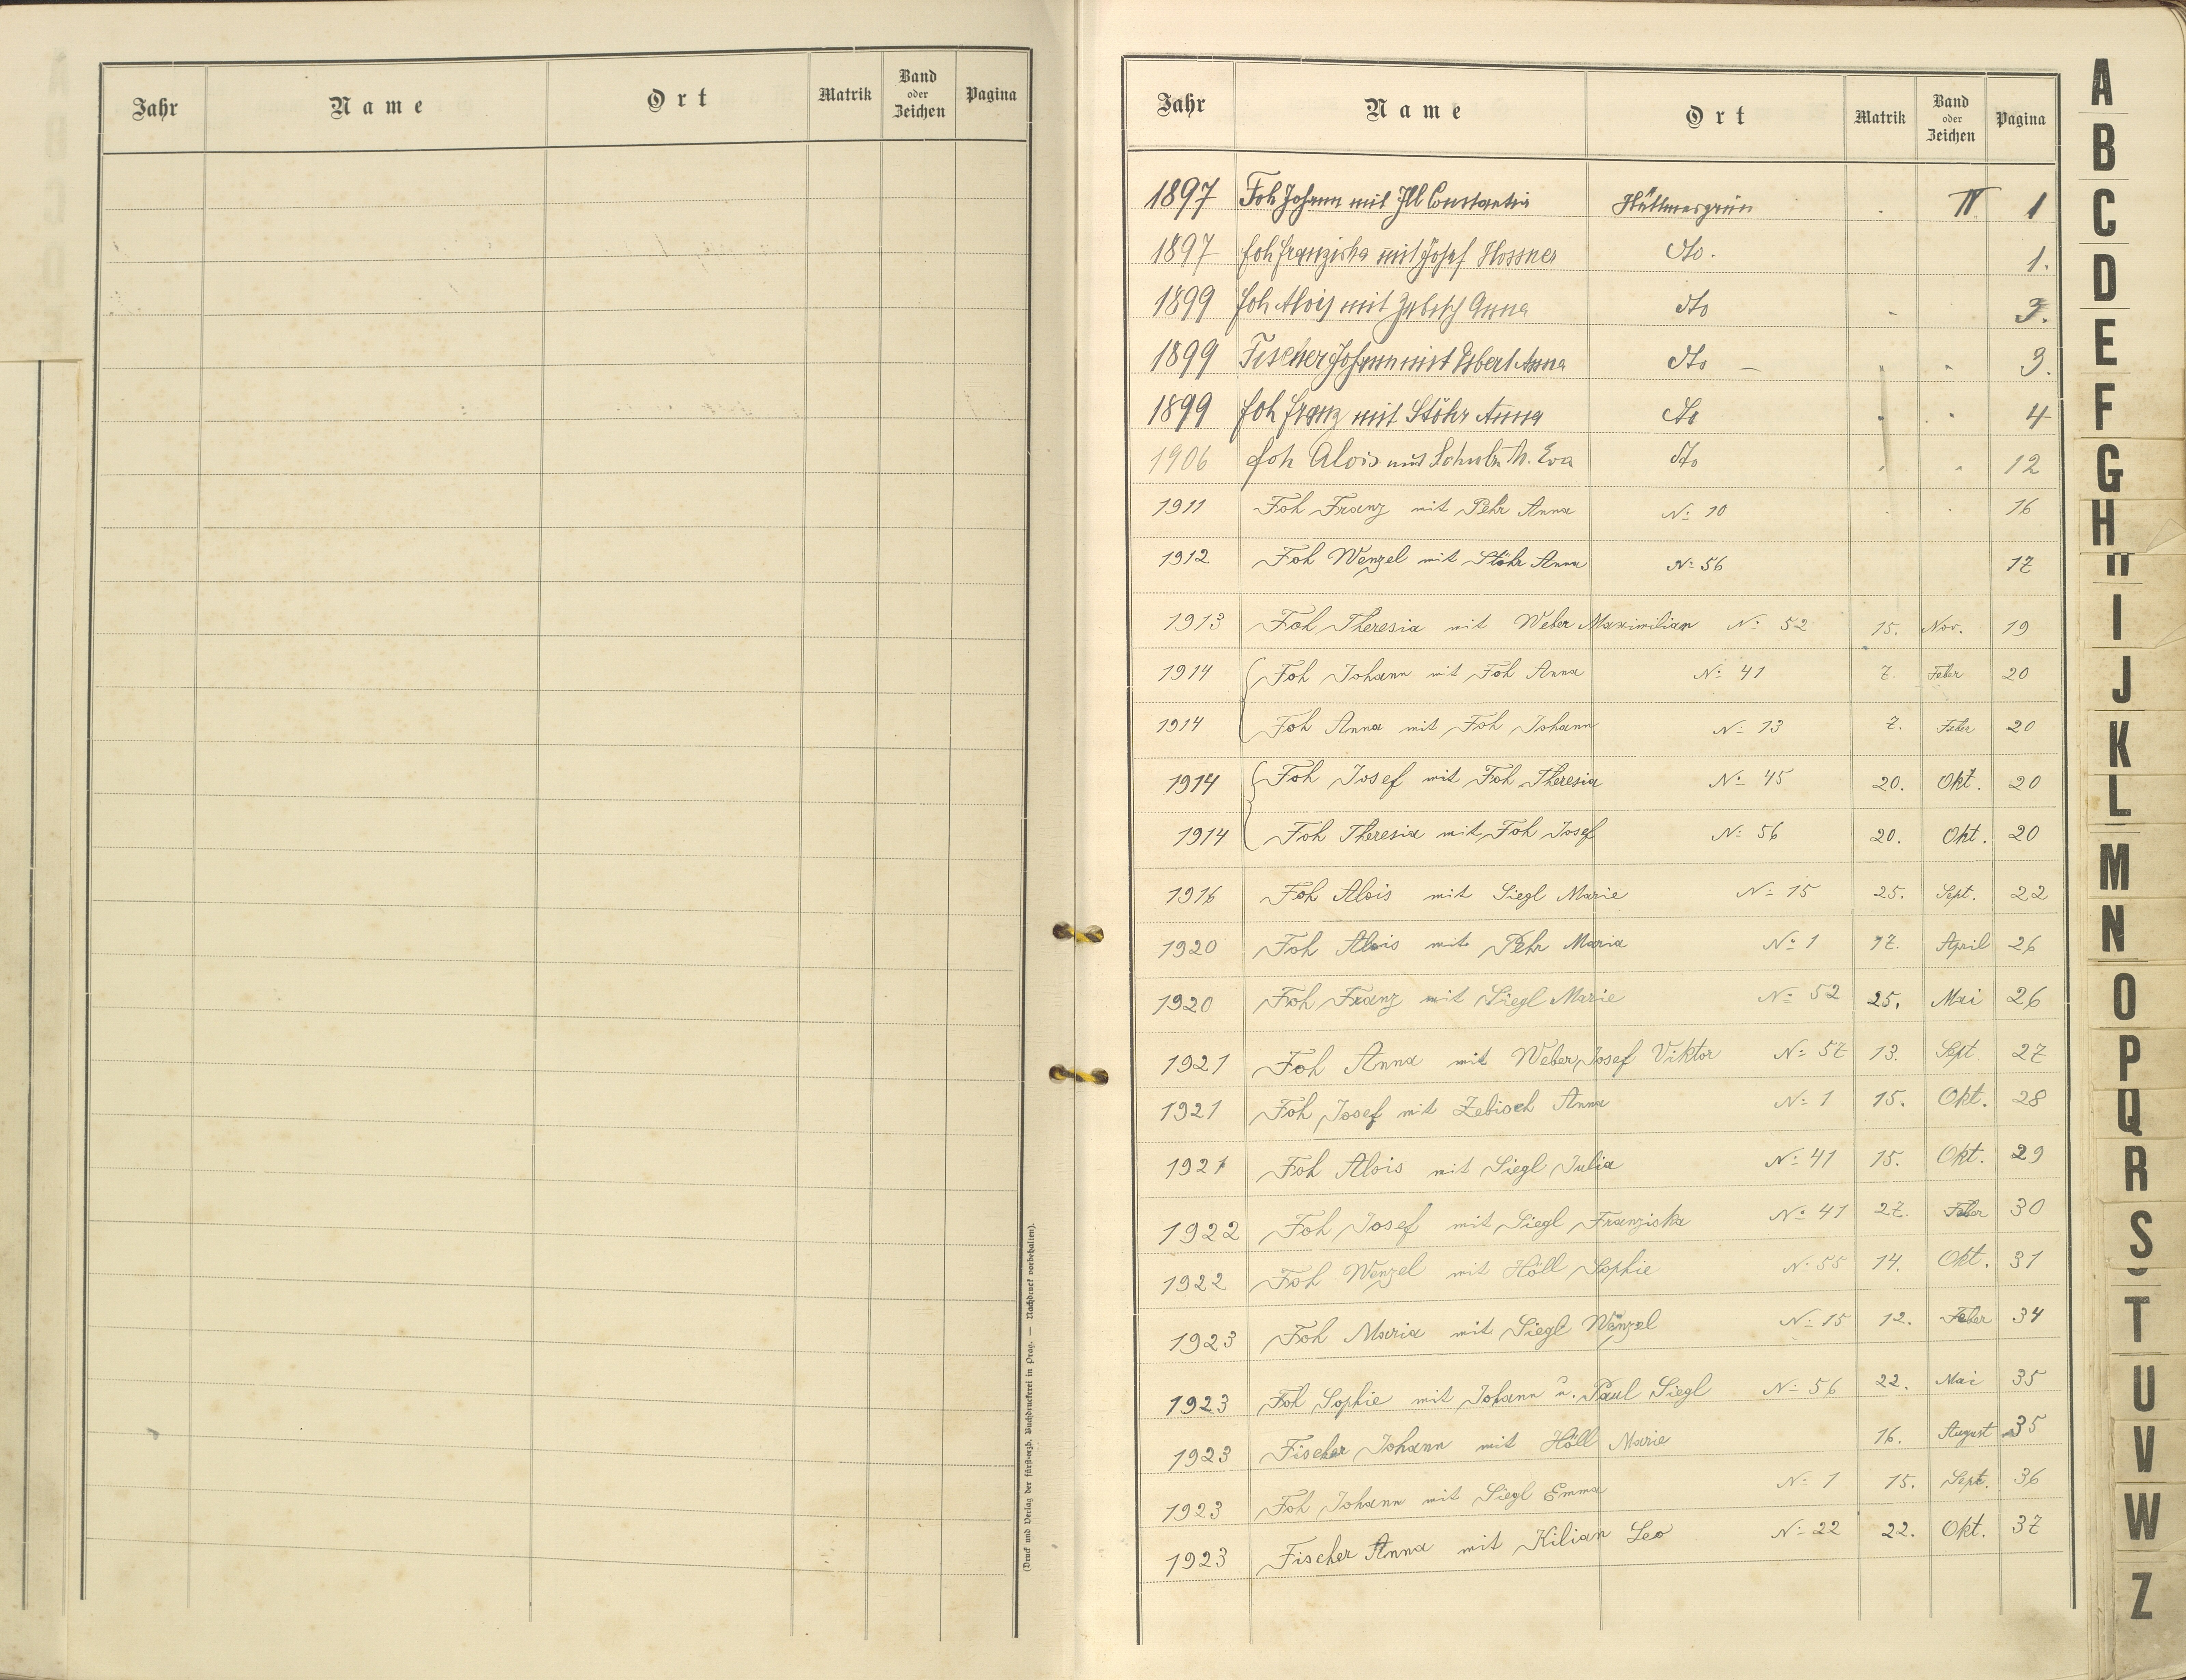 Jahr Name Ort Matrik Band oder Zeichen Pagina
(Druck und Verlag der fürsterzb. Buchdruckerei in Prag. — Nachdruck vorbehalten).
Jahr Name Ort Matrik Band oder Zeichen Pagina
1897 Foh Johann mit Ill Constantia Hüttmesgrün IV 1
1897 Foh Franziska mit Josef Hossner dto. 1.
1899 Foh Alois mit Zebisch Anna dto 3.
1899 Fischer Johann mit Anna dto — 3.
1899 Foh Franz mit Stöhr Anna dto 4
1906 Foh Alois mit M. Eva dto 12
1911 Foh Franz mit Pehr Anna No 10 16
1912 Foh Wenzel mit Stöhr Anna No 56 17
1913 Foh Theresia mit Weber Maximilian No 52 15. Nov. 19
1914 Foh Johann mit Foh Anna No 41 7. Feber 20
1914 Foh Anna mit Foh Johann No 13 7. Feber 20
1914 Foh Josef mit Foh Theresia No 45 20. Okt. 20
1914 Foh Theresia mit Foh Josef No 56 20. Okt. 20
1916 Foh Alois mit Siegl Marie No 15 25. Sept. 22
1920 Foh Alois mit Pehr Maria No 1 17. April 26
1920 Foh Franz mit Siegl Marie No 52 25. Mai 26
1921 Foh Anna mit Weber Josef Viktor No 57 13. Sept. 27
1921 Foh Josef mit Zebisch Anna No 1 15. Okt. 28
1921 Foh Alois mit Siegl Julia No 41 15. Okt. 29
1922 Foh Josef mit Siegl Franziska No 41 27. Feber 30
1922 Foh Wenzel mit Höll Sophie No 55 14. Okt. 31
1923 Foh Maria mit Siegl Wenzel No 15 12. Feber 34
1923 Foh Sophie mit Johann u. Paul Siegl No 56 22. Mai 35
1923 Fischer Johann mit Höll Marie 16. August 35
1923 Foh Johann mit Siegl Emma No 1 15. Sept. 36
1923 Fischer Anna mit Kilian Leo No 22 22. Okt. 37
A
B
C
D
E
F
G
H
I
J
K
L
M
N
O
P
Q
R
S
T
U
V
W
Z